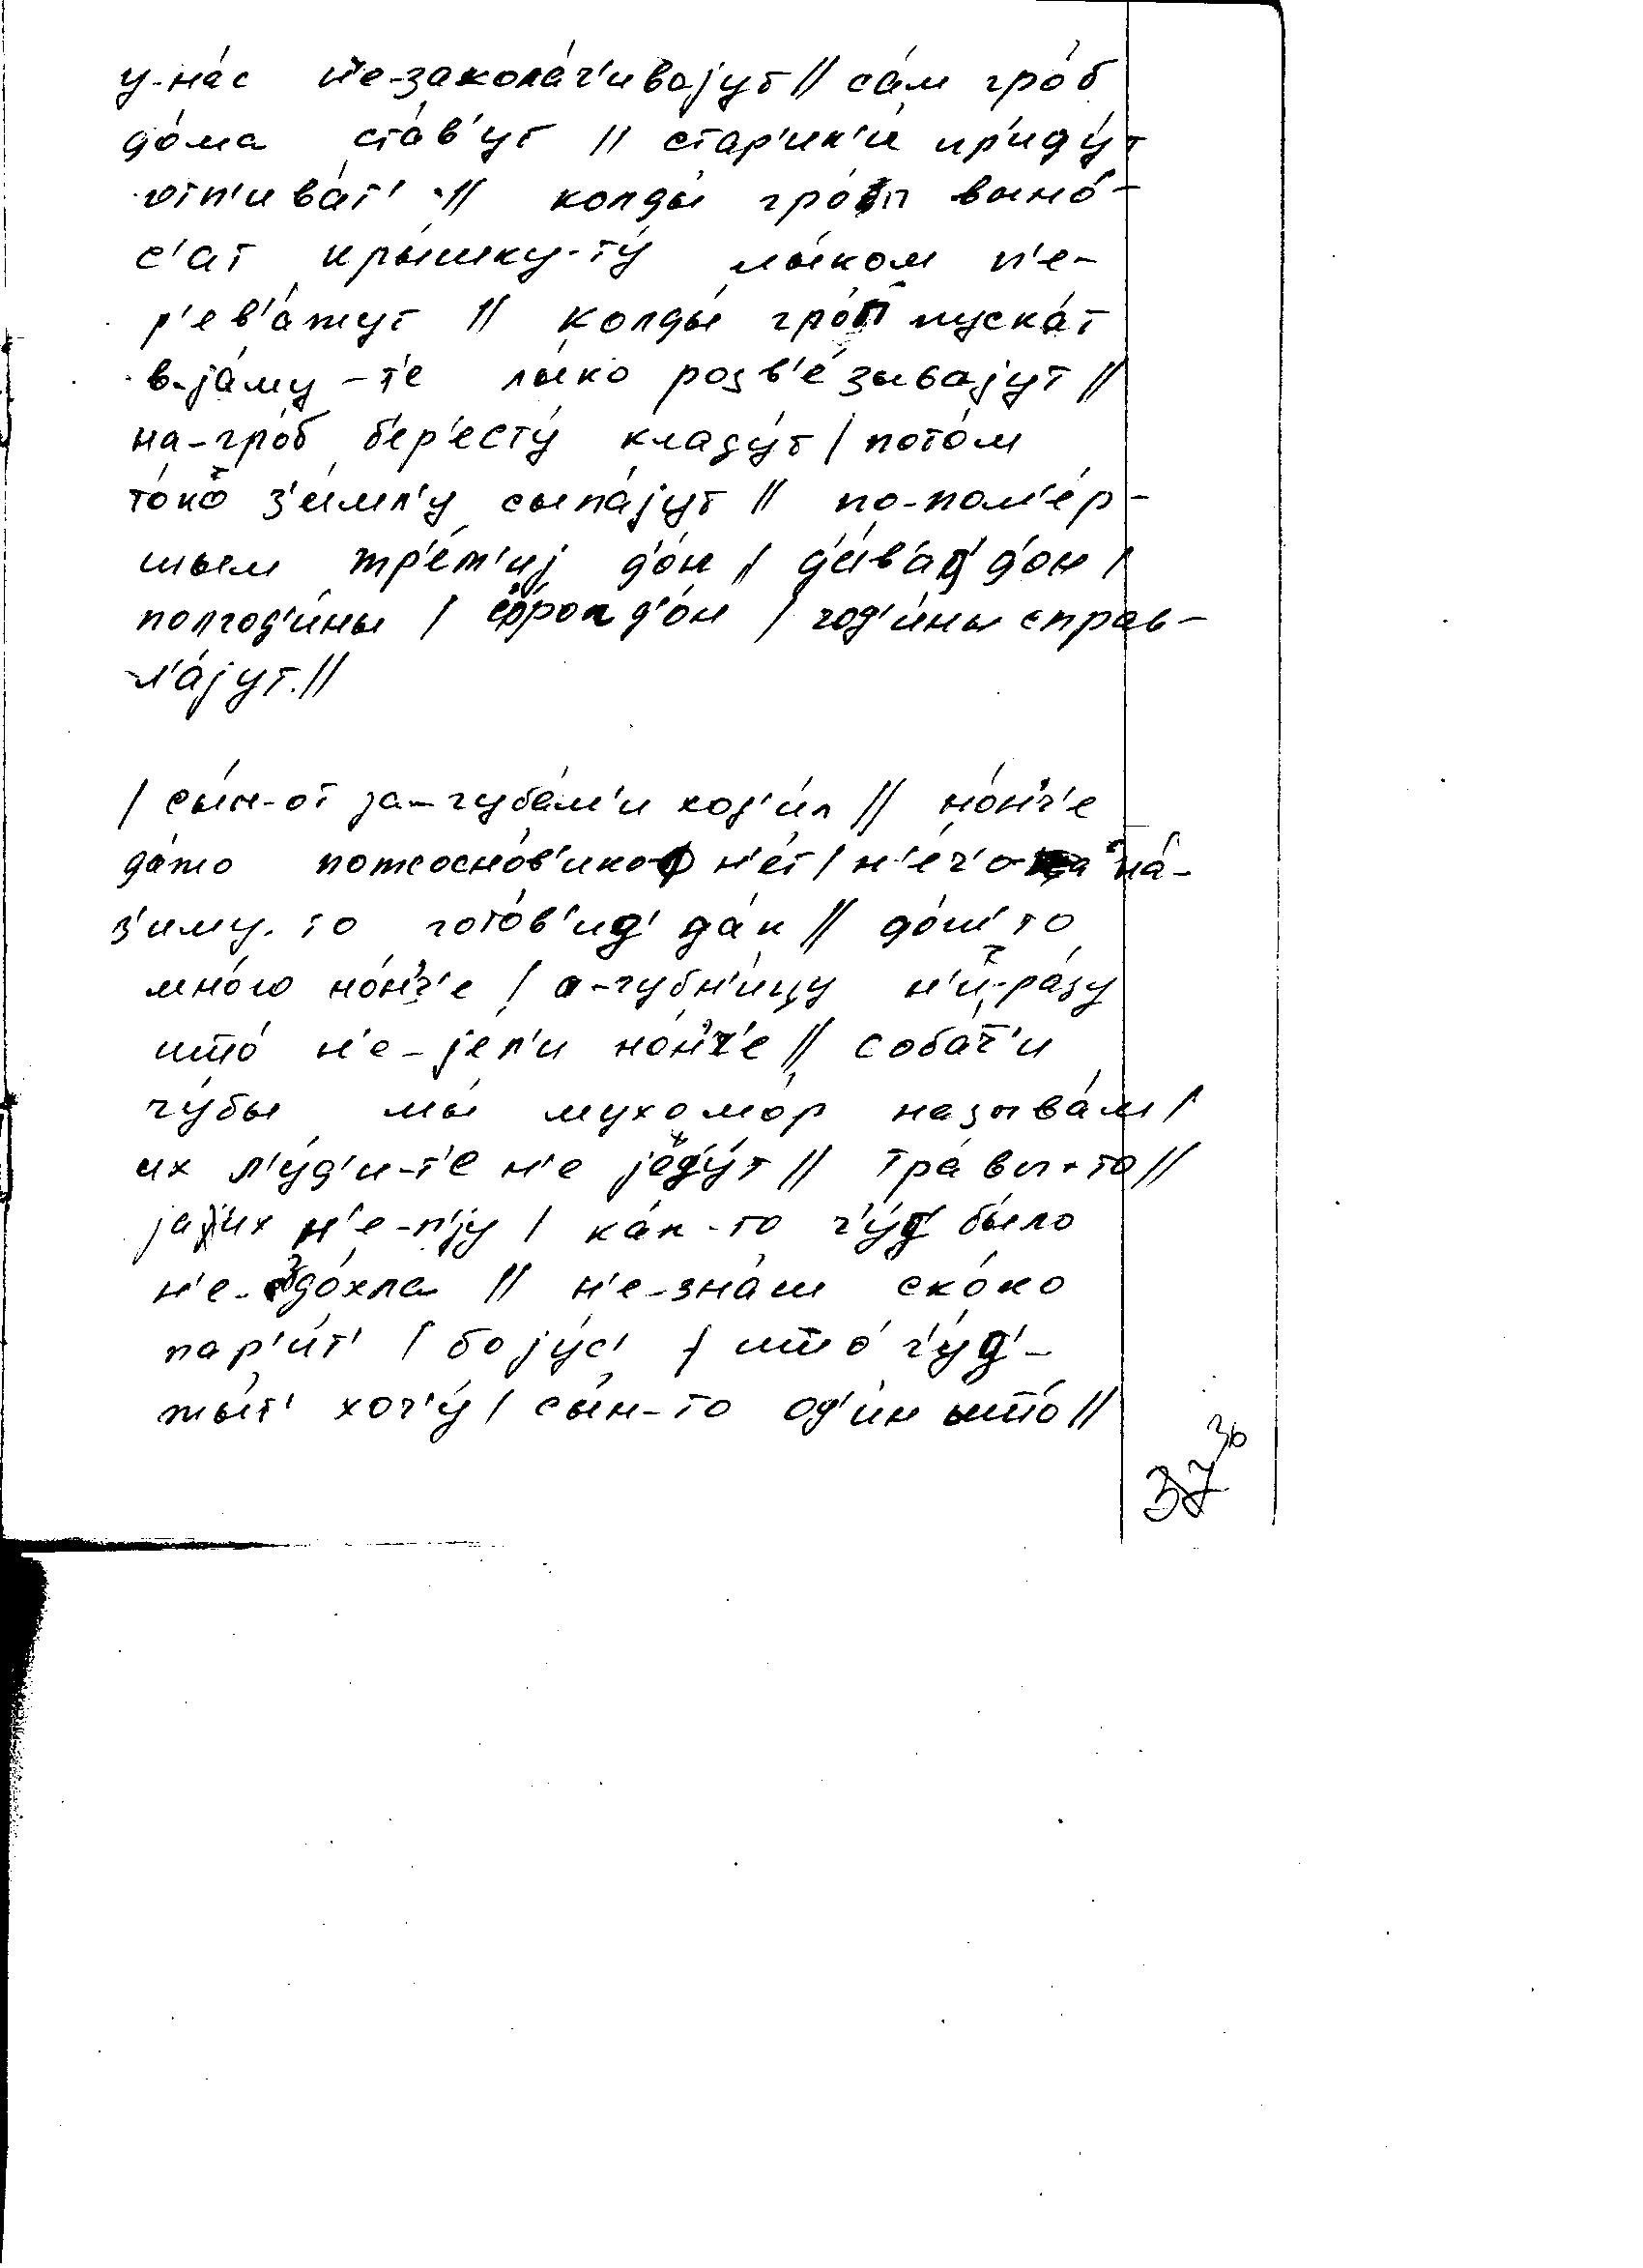 у-на́с не-закола́ч'ивајут // са́м гро́б
до́ма ста́в'ут // стар'ик'и́ пр'иду́т
отп'ива́т' // колды́ гро́п выно́-
с'ат кры́шку-ту́ лы́ком п'е-
р'ев'а́жут // колды́ гро́п пуска́т
в-јáму-т'е лы́ко розв'е́зывајут //
на-гро́б б'ер'есту́ кладу́т / пото́м
то́ко з'е́мл'у сыпа́јут // по-пом'е́р-
шым тр'е́т'иј д'о́н / д'е́в'ат д'о́н /
полгод'и́ны / со́рок д'о́н / год'и́ны справ-
л'а́јут //
/ сы́н-от за-губа́м'и ход'и́л // но́нч'е
да́жо потосно́в'иков н'е́т / н'е́ч'о на́-
з'иму-то гото́в'ид' да́к // до́ш'то
мно́го но́нч'е / а-губн'и́цу н'и-ра́зу
што́ н'е-је́л'и но́нч'е // соба́ч'и
гу́бы мы́ мухомо́р называ́м /
их л'у́д'и-т'е н'е једу́т // тра́вы-то //
ја их н'е-п'ју / ка́к-то ч'у́д' бы́ло
н'е-здо́хла // н'е-зна́ш ско́ко
пар'и́т' / бојýс' / што́ ч'у́д'-
жы́т' хоч'у́ / сы́н-то од'и́н што́ //
37 36